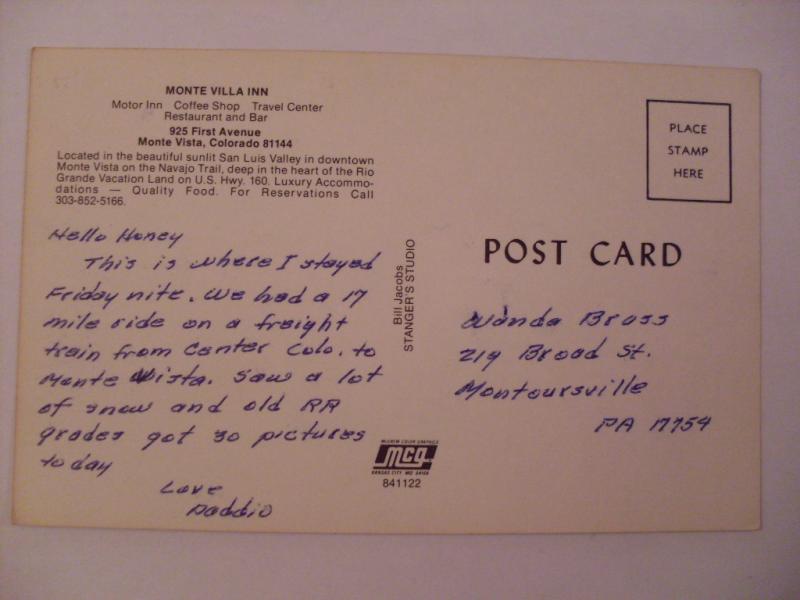 MONTE VILLA INN
Motor Inn Coffee Shop Travel Center
Restaurant and Bar
925 First Avenue
Monte Vista, Colorado 81144
Located in the beautiful sunlit San Luis Valley in downtown
Monte Vista on the Navajo Trail, deep in the heart of the Rio
Grande Vacation Land on U.S. Hwy. 160. Luxury Accommo-
dations — Quality Food. For Reservations Call
303-852-5166.
Hello Honey
This is where I stayed
Friday nite. We had a 17
mile ride on a freight
train from Center Colo. to
Monte Vista. Saw a lot
of snow and old RR
grades got 30 pictures
today
Love
Daddio
Bill Jacobs
STANGER'S STUDIO
McGREW COLOR GRAPHICS
MCG
KANSAS CITY, MO 64108
841122
PLACE
STAMP
HERE
POST CARD
Wanda Bross
219 Broad St.
Montoursville
PA 17754